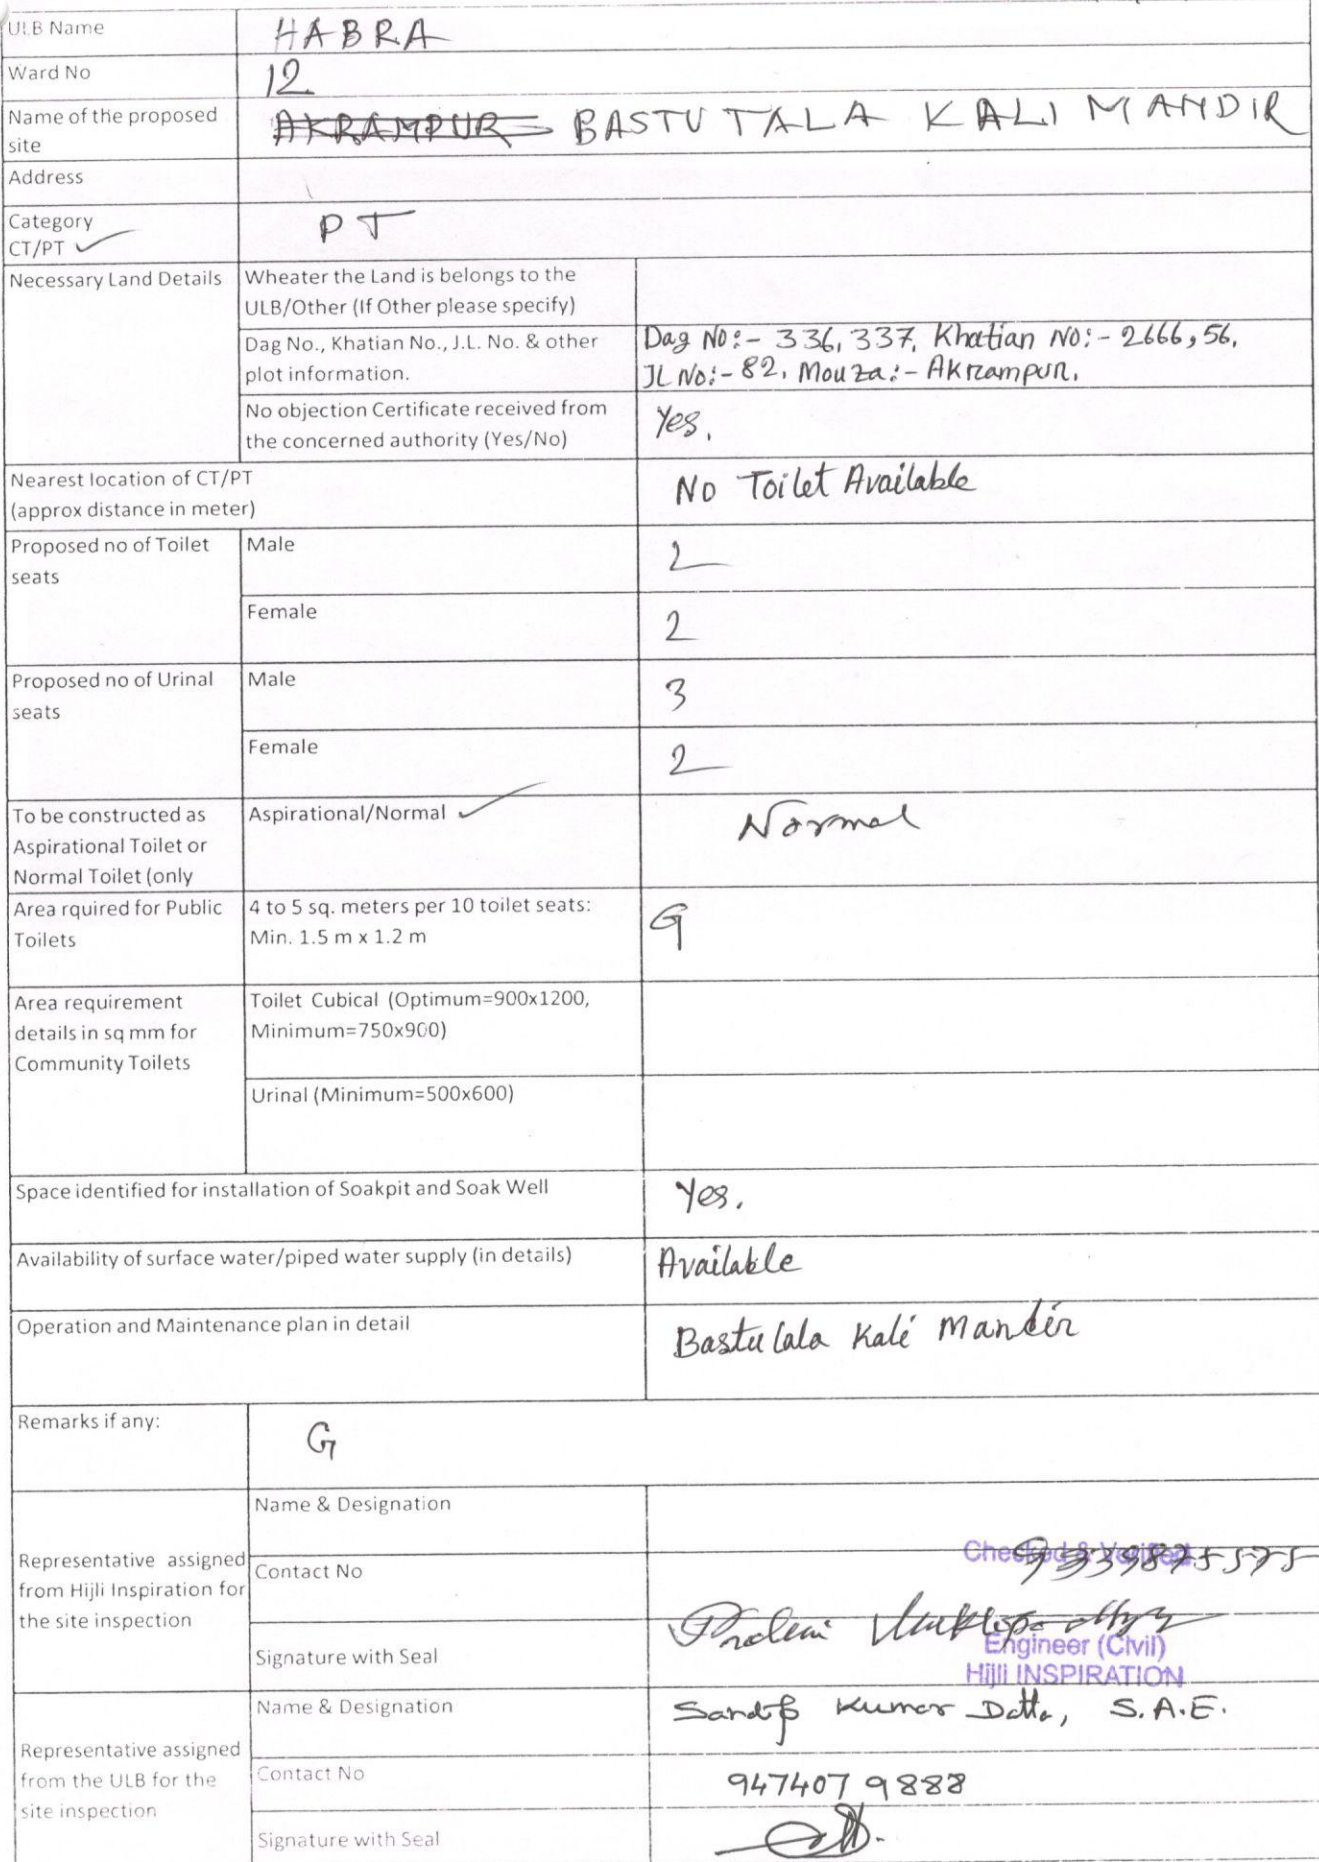 ULB Name
HABRA
Ward No
12
Name of the proposed
site
AKRAMPUR BASTUTALA KALI MANDIR
Address
Category
CT/PT
PT
Necessary Land Details
Wheater the Land is belongs to the
ULB/Other (If Other please specify)
Dag No., Khatian No., J.L. No. & other
plot information.
Dag No:- 336, 337, Khatian No:- 2666, 56,
JL No:- 82, Mouza:- Akrampur.
No objection Certificate received from
the concerned authority (Yes/No)
Yes.
Nearest location of CT/PT
(approx distance in meter)
No Toilet Available
Proposed no of Toilet
seats
Male
2
Female
2
Proposed no of Urinal
seats
Male
3
Female
2
To be constructed as
Aspirational Toilet or
Normal Toilet (only
Aspirational/Normal
Normal
Area rquired for Public
Toilets
4 to 5 sq. meters per 10 toilet seats:
Min. 1.5 m x 1.2 m
G
Area requirement
details in sq mm for
Community Toilets
Toilet Cubical (Optimum=900x1200,
Minimum=750x900)
Urinal (Minimum=500x600)
Space identified for installation of Soakpit and Soak Well
Yes.
Availability of surface water/piped water supply (in details)
Available
Operation and Maintenance plan in detail
Bastutala Kali Mandir
Remarks if any:
G
Representative assigned
from Hijli Inspiration for
the site inspection
Name & Designation
Contact No
Checked & Verified
9339875575
Signature with Seal
Engineer (Civil)
Hijli INSPIRATION
Representative assigned
from the ULB for the
site inspection
Name & Designation
Sandip Kumar Datta, S.A.E.
Contact No
9474079888
Signature with Seal